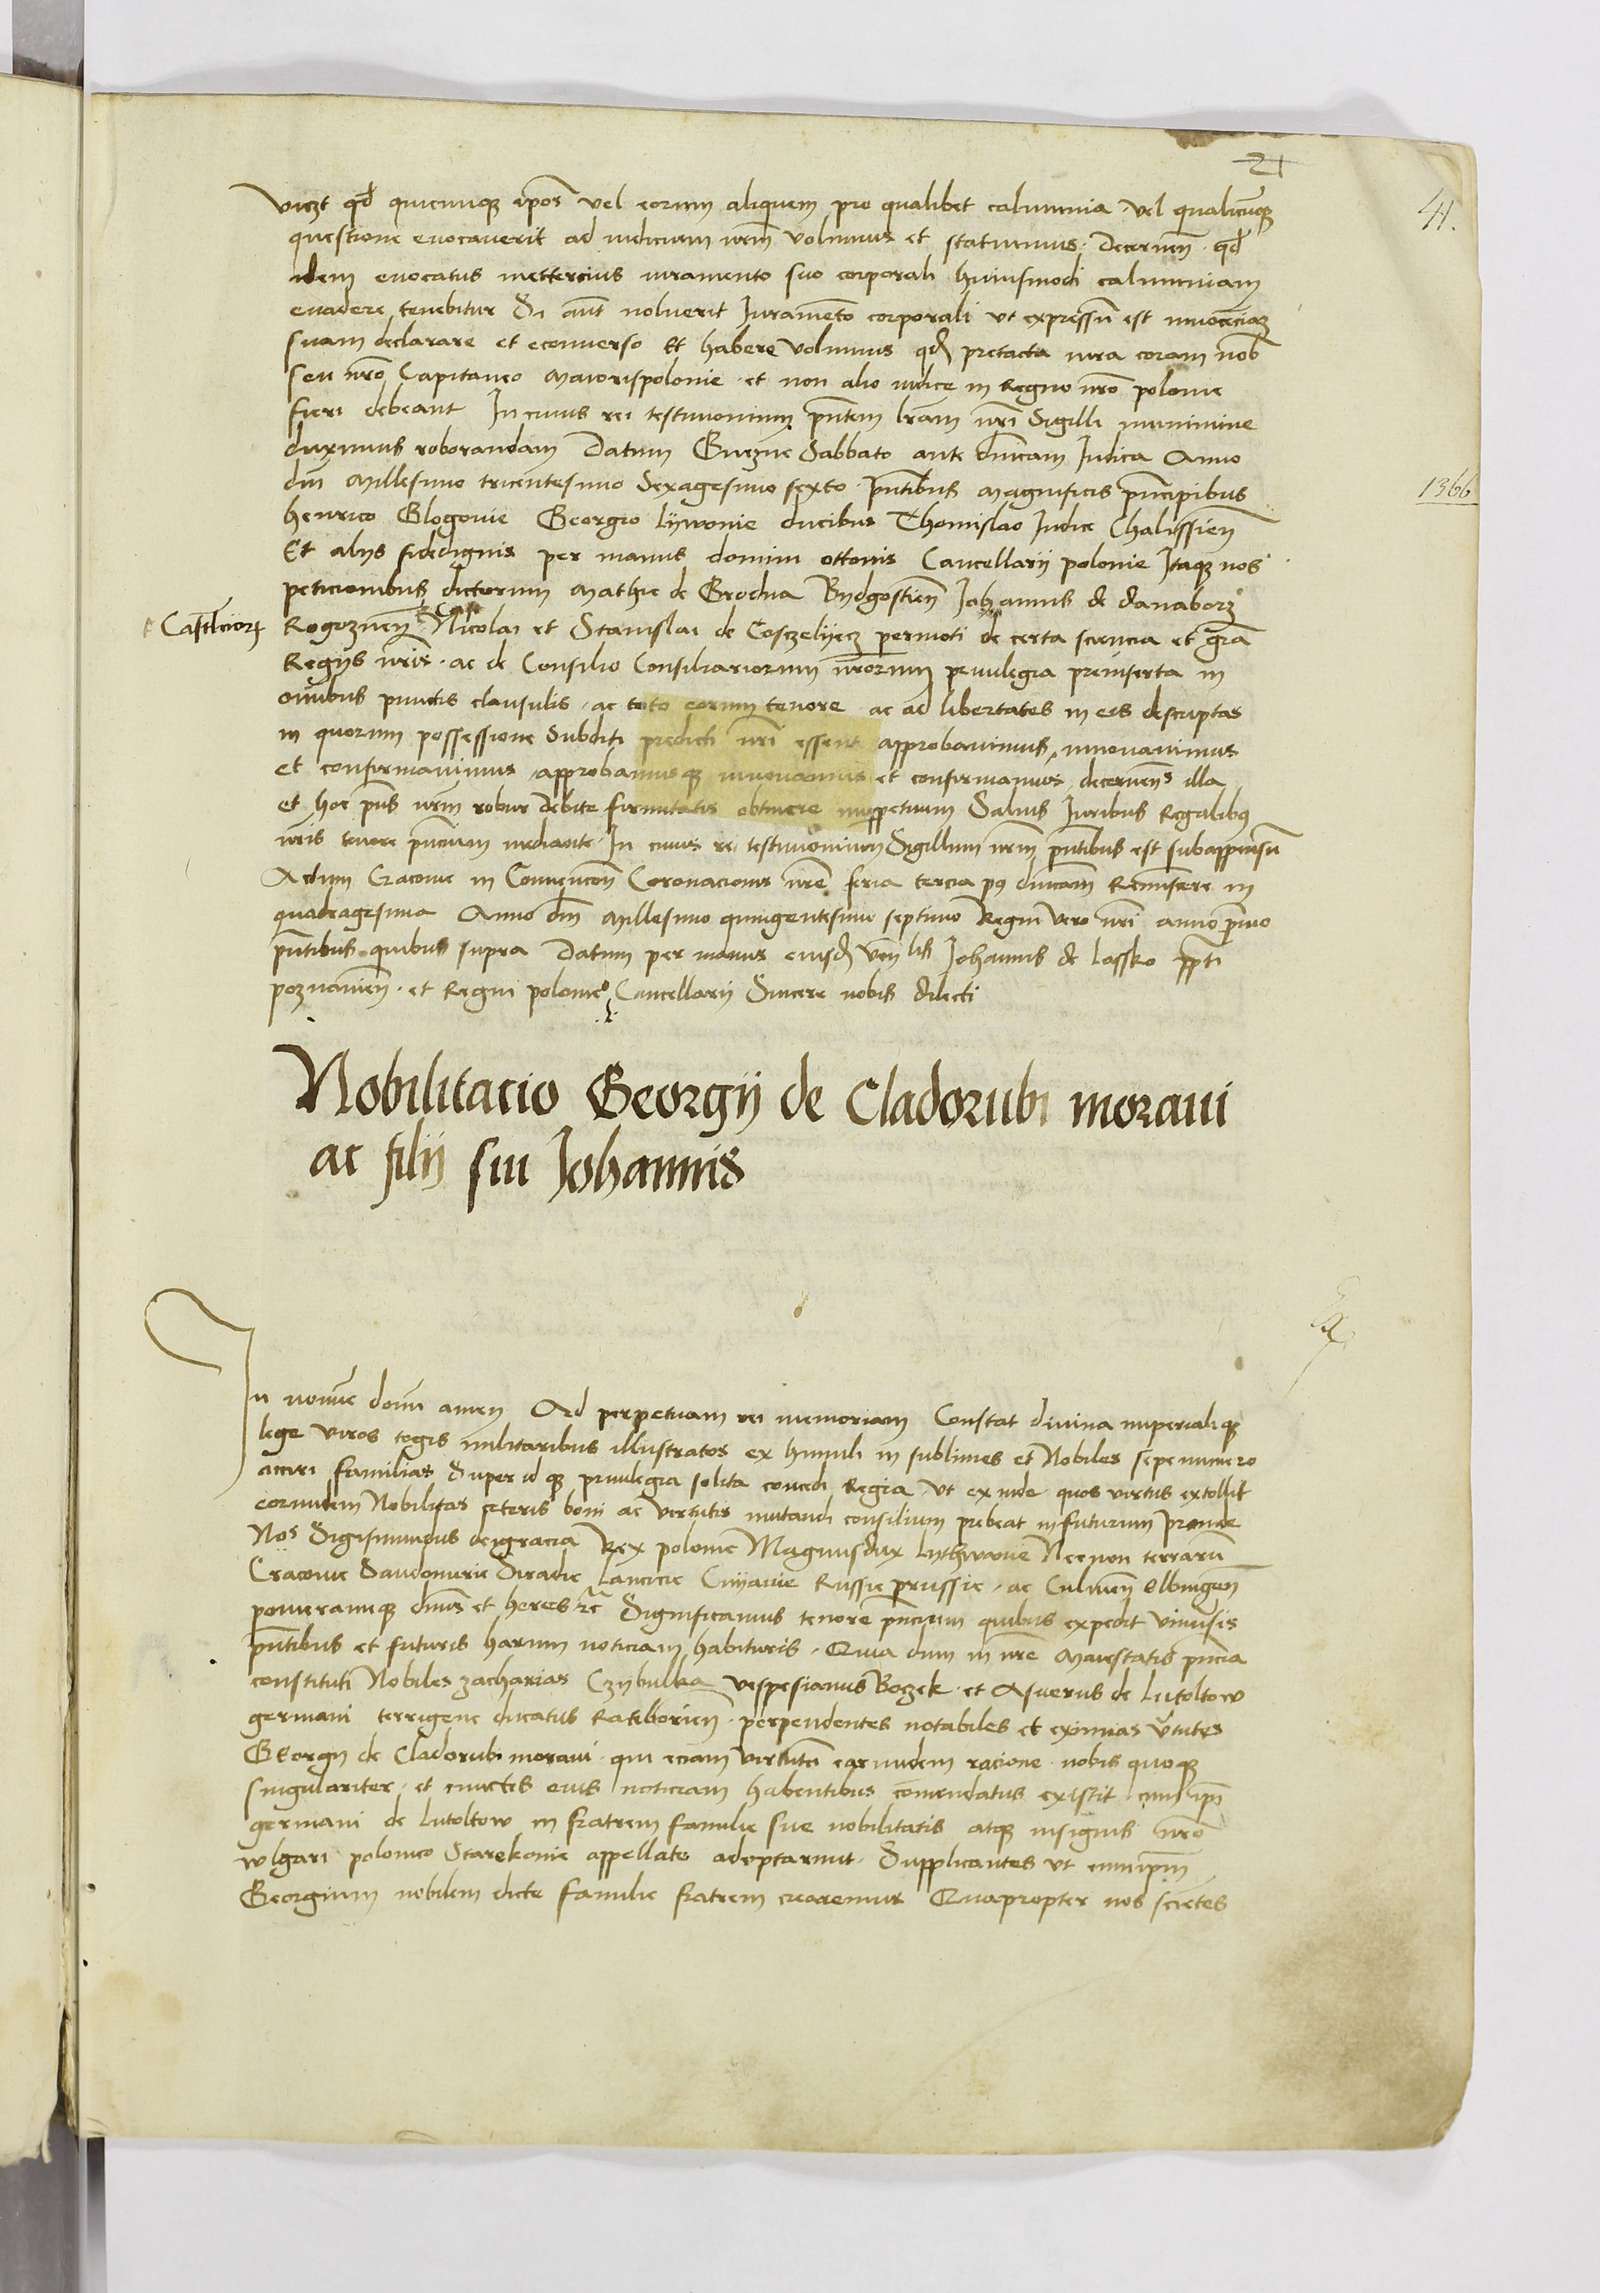 21
41.
viczt qd quicunque ipos vel eorum aliquem pro qualibet calumnia vel qualicunque
questione evocaverit ad iudicium nrm volumus et statuimus decernen qd
idem evocatus mettercius iuramento suo corporali huiusmodi calumniam
evadere tenebitur Si aut noluerit Iuramento corporali ut expressum est innocenciam
suam declarare et econverso Et habere volumus qd pretacta iura coram nob
seu nro Capitaneo Maiorispolonie et non alio iudice in Regno nro polonie
fieri debeant In cuius rei testimonium pntem lram nri Sigilli munimine
duximus roborandam Datum Gnezne Sabbato ante dnicam Iudica Anno
dni Millesimo tricentesimo Sexagesimo sexto pntibus Magnificis principibus
1366
henrico Glogovie Georgio Lijwonie ducibus Thomislao Iudice Chalissien
Et alijs fidedignis per manus domini ottonis Cancellarij polonie Itaque nos
peticionibus dictorum Mathie de Grodna Bydgostien Johannis de danaborz
Castlcior
Rogoznen Nicolai et Stanislai de Cosczelijecz permoti de certa sciencia et gra
Regijs nris ac de Consilio Consiliariorum nrorum privilegia preinserta in
omnibus punctis clausulis ac toto eorum tenore ac ad libertates in eis descriptas
in quorum possessione Subditi predicti nri essent approbavimus innovavimus
et confirmavimus approbamusque innovamus et confirmamus decernens illa
et hoc pns nrm robur debite firmitatis obtinere inperpetuum Salvis Iuribus Regalibus
nris tenore pncium mediante In cuius rei testimonium Sigillum nrm pntibus est subappensum
Actum Cracovie in Convencon Coronacionis nre feria tercia post dnicam Reminscere in
quadragesima Anno dni Millesimo quingentesimo septimo Regni vero nri anno primo
pntibus quibus supra Datum per manus eiusd Ven lis Johannis de Lassko ppti
poznanien et Regni polonie Cancellarij Sincere nobis dilecti
Nobilitacio Georgij de Cladorubi moravi
ac filij sui Johannis
In nomine domi amen Ad perpetuam rei memoriam Constat divina imperialique
lege viros togis militaribus illustratos ex humili in sublimes et Nobiles sepenumero
attiri familias Superidque privilegia solita concedi Regia ut exinde quos virtus extollit
eorundem Nobilitas ceteris boni ac virtutis imitandi consilium prebeat infuturum Proinde
Nos Sigismundus deigracia Rex polonie Magnusdux Lythwanie Necnon terrarum
Cracovie Sandomirie Siradie Lancicie Cuijavie Russie prussie ac Culmen Elbingen
pomeranieque dnus et heres etc Significamus tenore pncium quibus expedit universis
pntibus et futuris harum noticiam habituris Quia dum in nre Maiestatis pncia
constituti Nobiles zacharias Czybulka vespesianus Boczek et Asverus de Lutoltow
germani terrigene ducatus Ratiborien perpendentes notabiles et eximias vtutes
Georgij de Cladorubi moravi qui eciam virtutem earundem racione nobis quoque
singulariter et cunctis eius noticiam habentibus comendatus existit eum ipi
germani de Lutoltow in fratrem familie sue nobilitatis atque insignis nro
wlgari polonico Starekonie appellate adoptarunt Supplicantes ut eumipm
Georgium nobilem dicte familie fratrem crearemus Quapropter nos scietes